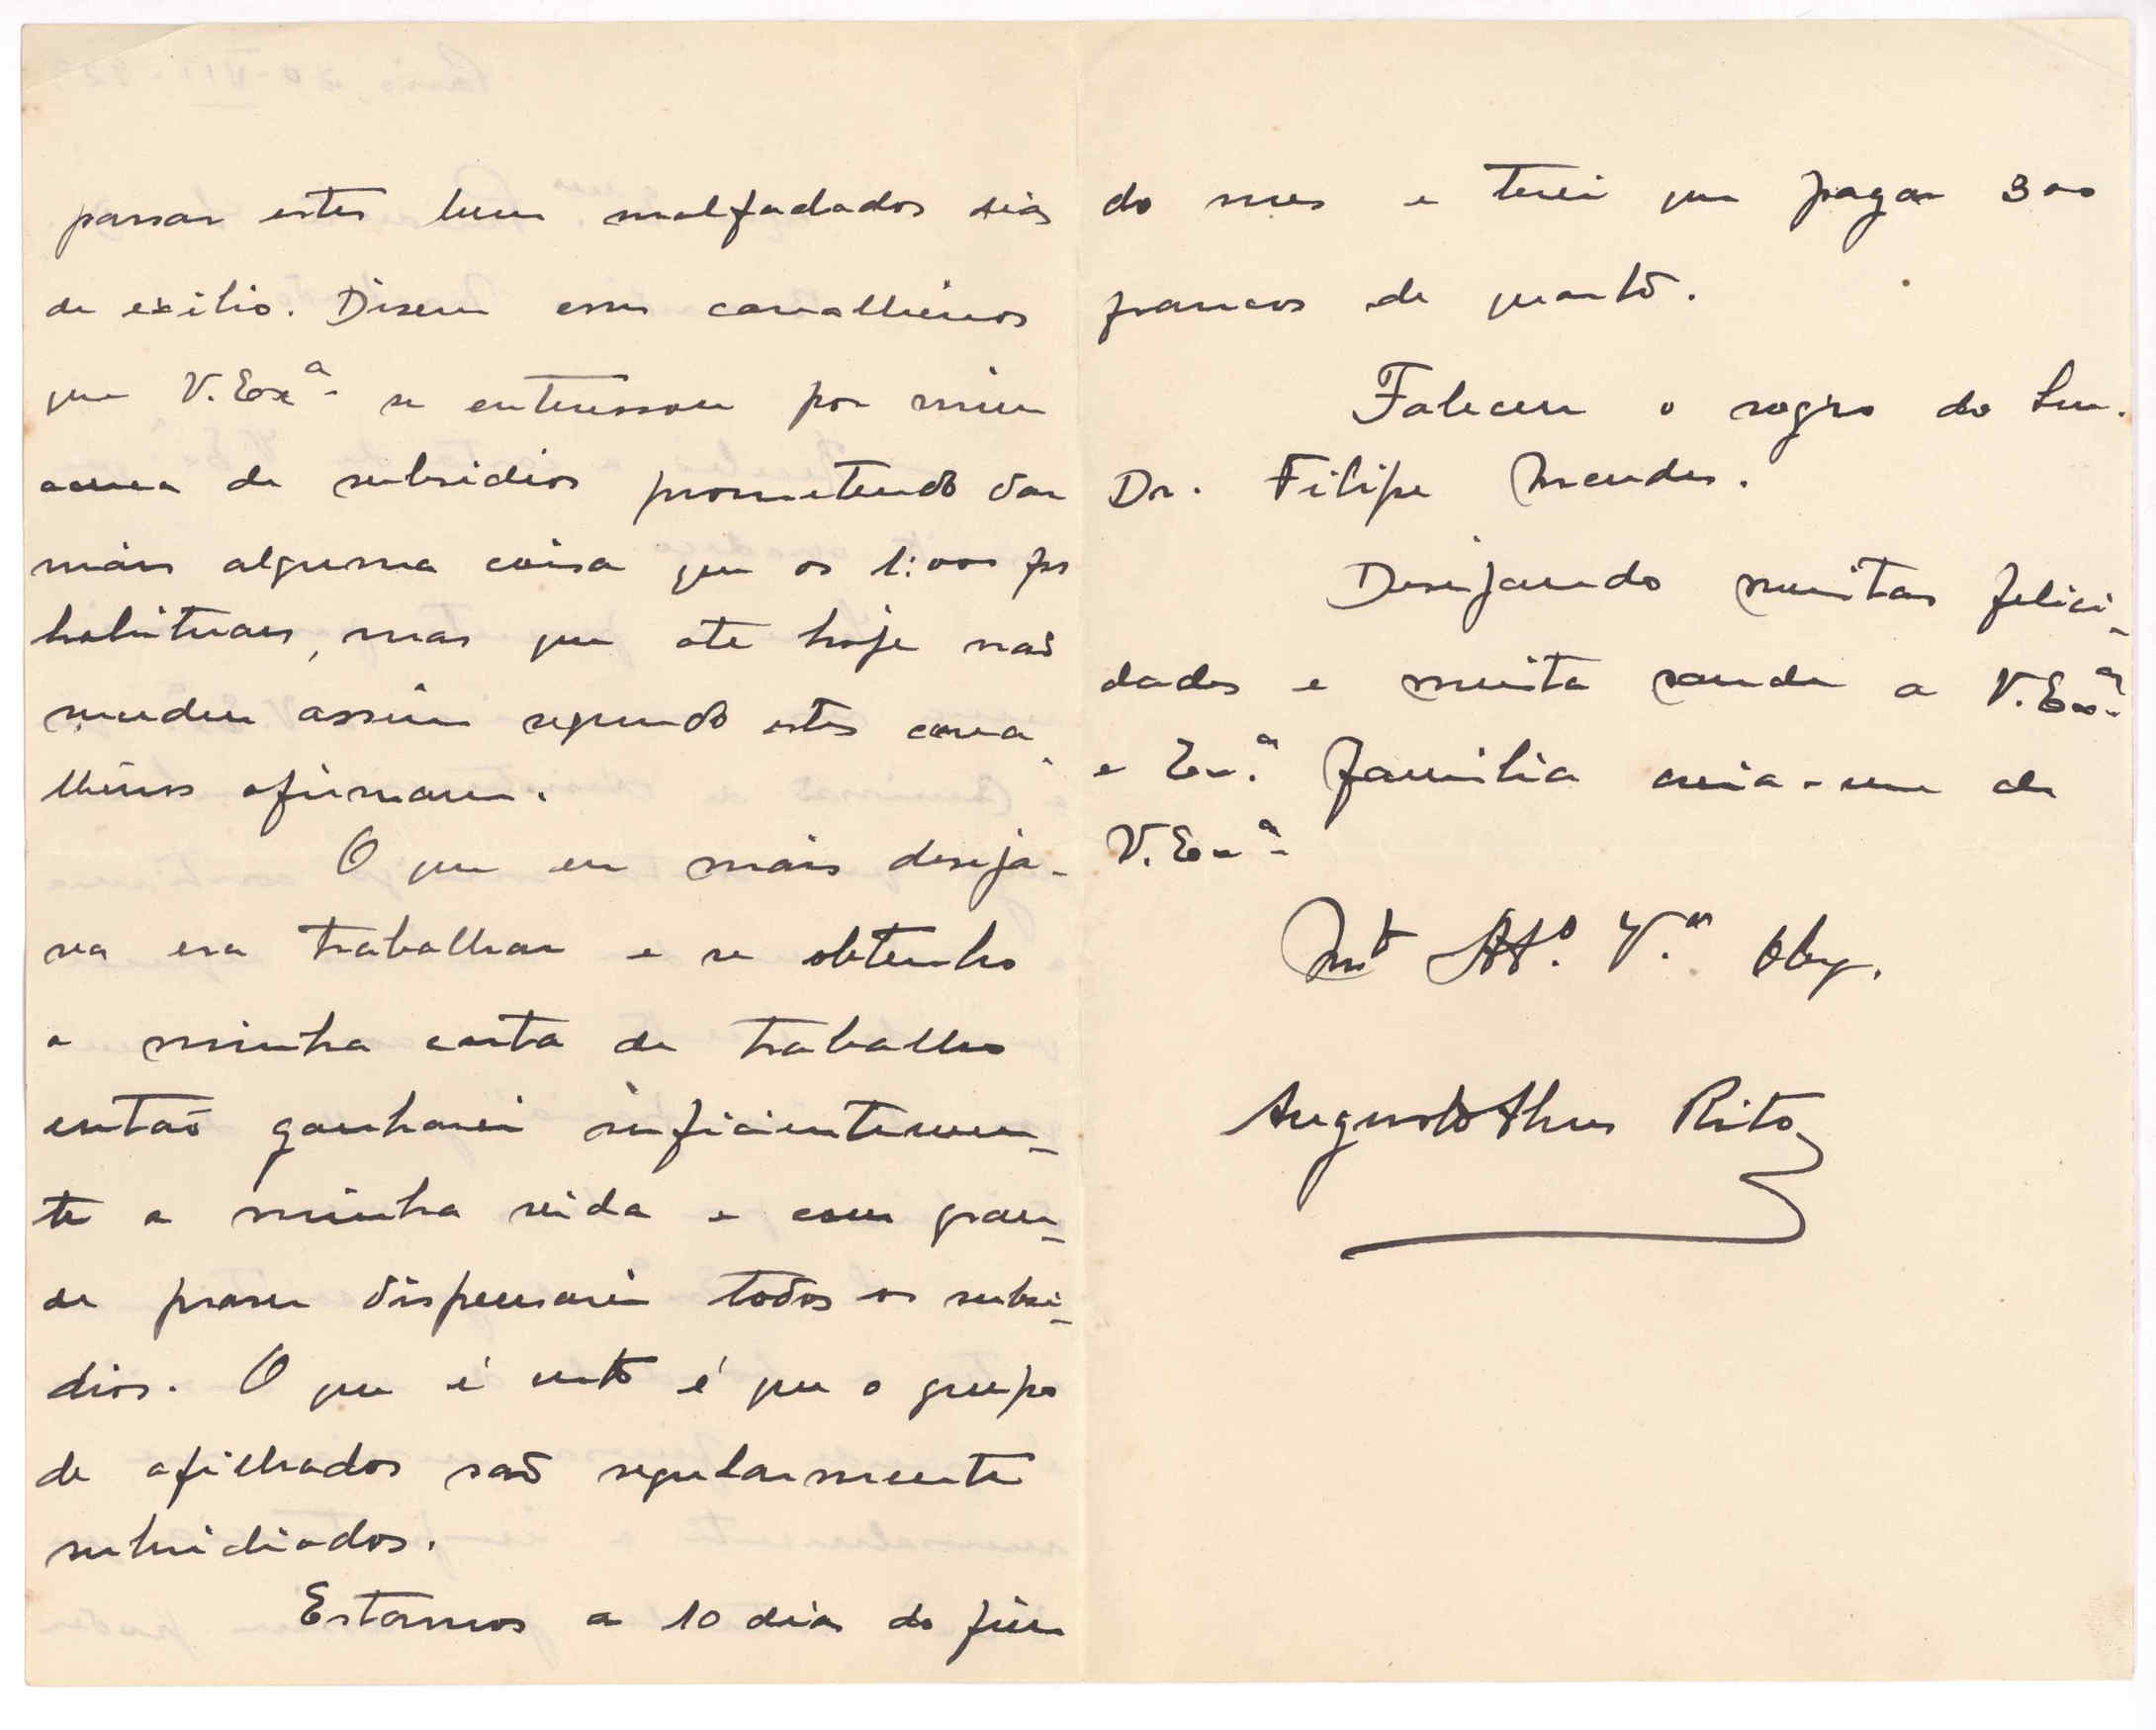 passar estes bem malfadados dias
de exilio. Disem esses cavalheiros
que V. Exª se enteressou por mim
acerca de subsidios prometendo dar
mais alguma coisa que os 1:000 frs
habituaes, mas que ate hoje não
mudou assim segundo estes cava-
lheiros afirmam.
O que eu mais deseja-
va era trabalhar e se obtenho
a minha carta de trabalho
então ganharei suficientemen-
te a minha vida e com gran-
de praser dispensarei todos os subsi-
dios. O que é certo é que o grupo
de afilhados são regularmente
subsidiados.
Estamos a 10 dias do fim
do mes e terei que pagar 300
francos de quarto.
Faleceu o sogro do Snr.
Dr. Filipe Mendes.
Desejando muitas felici-
dades e muita saude a V. Exª
e Exª familia creia-me de
V. Exª
Mt Attº Vºr Obg.
Augusto Rito